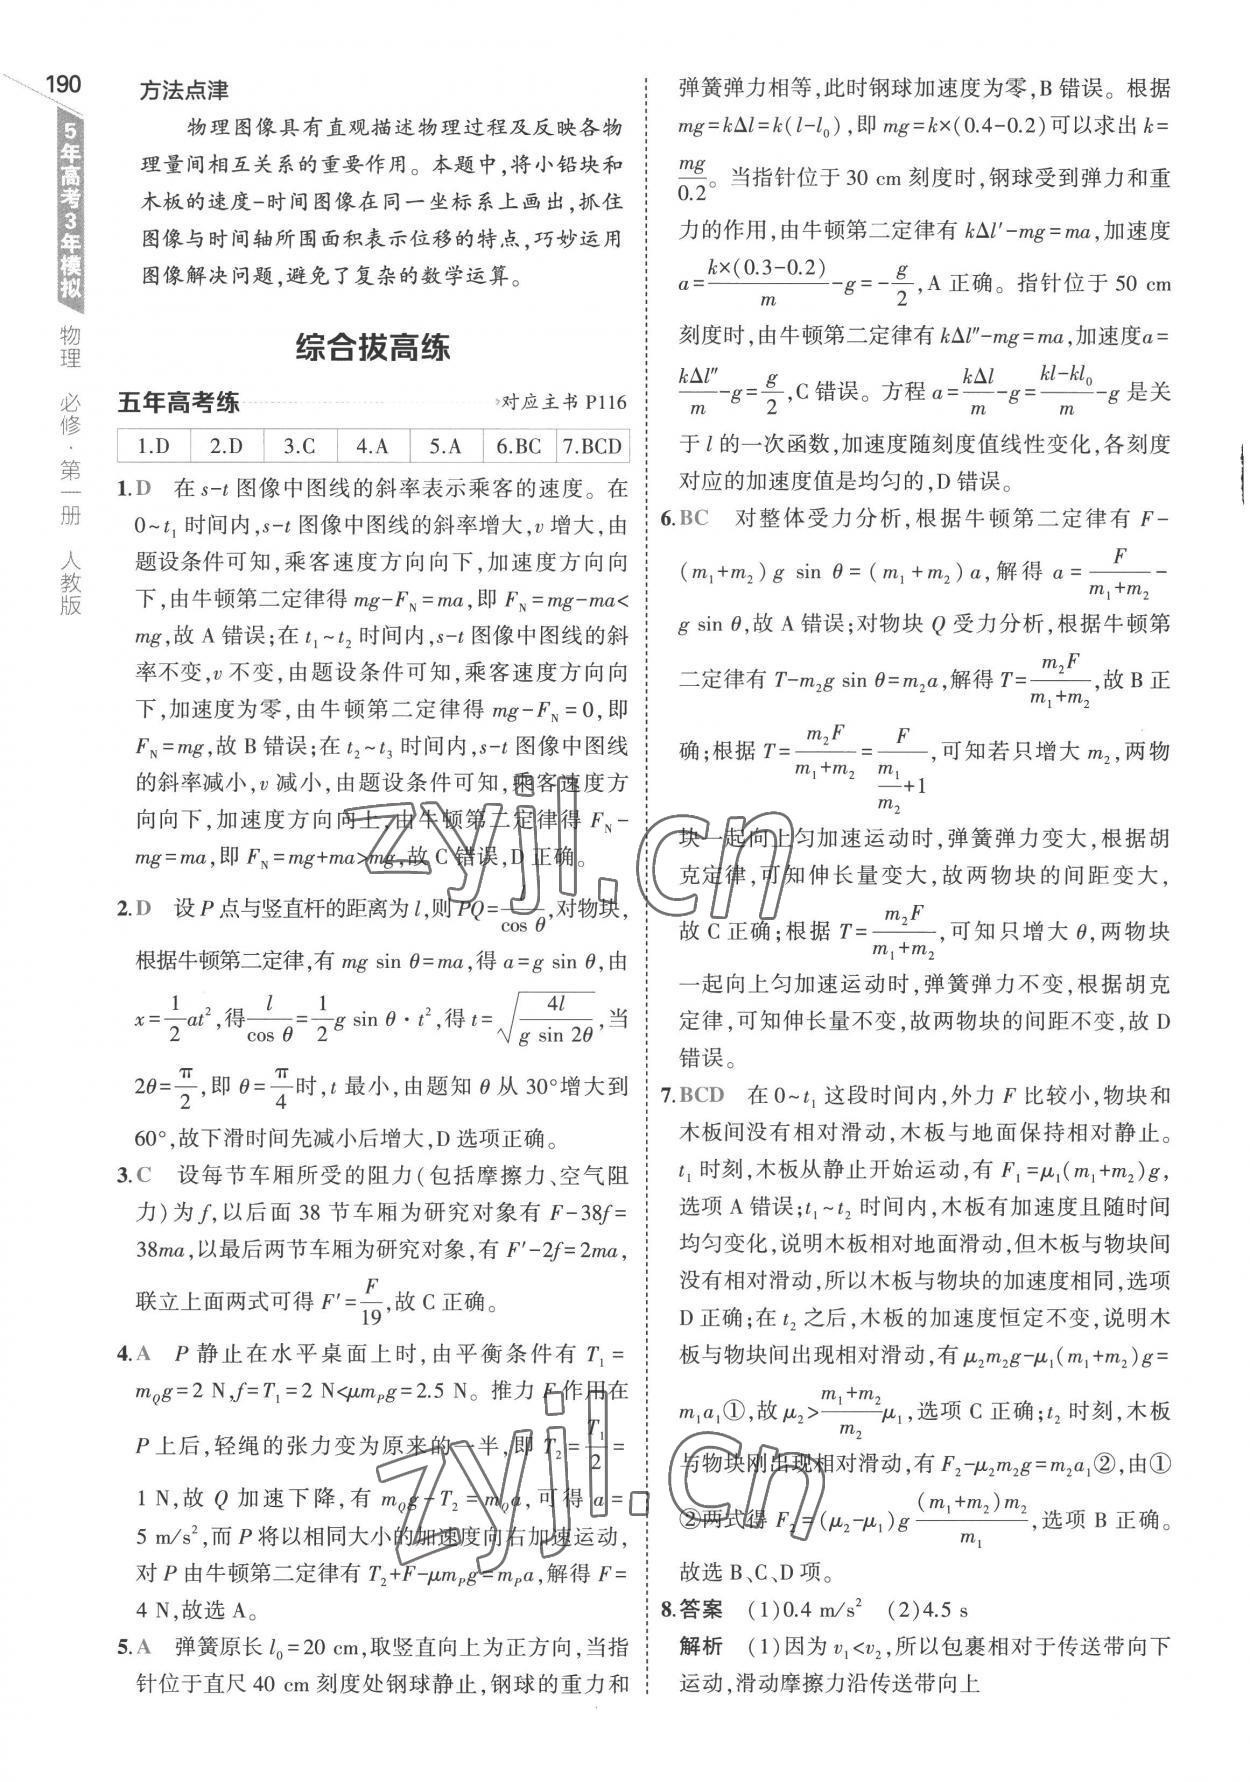 190
5年高考3年模拟
物理 必修·第一册 人教版
方法点津
物理图像具有直观描述物理过程及反映各物
理量间相互关系的重要作用。本题中,将小铅块和
木板的速度-时间图像在同一坐标系上画出,抓住
图像与时间轴所围面积表示位移的特点,巧妙运用
图像解决问题,避免了复杂的数学运算。
综合拔高练
五年高考练 对应主书 P116
1.D 2.D 3.C 4.A 5.A 6.BC 7.BCD
1.D 在 s-t 图像中图线的斜率表示乘客的速度。在
0~t₁ 时间内,s-t 图像中图线的斜率增大,v 增大,由
题设条件可知,乘客速度方向向下,加速度方向向
下,由牛顿第二定律得 mg-F_N=ma,即 F_N=mg-ma<
mg,故 A 错误;在 t₁~t₂ 时间内,s-t 图像中图线的斜
率不变,v 不变,由题设条件可知,乘客速度方向向
下,加速度为零,由牛顿第二定律得 mg-F_N=0,即
F_N=mg,故 B 错误;在 t₂~t₃ 时间内,s-t 图像中图线
的斜率减小,v 减小,由题设条件可知,乘客速度方
向向下,加速度方向向上,由牛顿第二定律得 F_N-
mg=ma,即 F_N=mg+ma>mg,故 C 错误,D 正确。
2.D 设 P 点与竖直杆的距离为 l,则 PQ=l/cos θ,对物块,
根据牛顿第二定律,有 mg sin θ=ma,得 a=g sin θ,由
x=1/2 at²,得 l/cos θ=1/2 g sin θ·t²,得 t=√(4l/(g sin 2θ)),当
2θ=π/2,即 θ=π/4时,t 最小,由题知 θ 从 30°增大到
60°,故下滑时间先减小后增大,D 选项正确。
3.C 设每节车厢所受的阻力(包括摩擦力、空气阻
力)为 f,以后面 38 节车厢为研究对象有 F-38f=
38ma,以最后两节车厢为研究对象,有 F′-2f=2ma,
联立上面两式可得 F′=F/19,故 C 正确。
4.A P 静止在水平桌面上时,由平衡条件有 T₁=
m_Q g=2 N,f=T₁=2 N<μm_P g=2.5 N。推力 F 作用在
P 上后,轻绳的张力变为原来的一半,即 T₂=T₁/2=
1 N,故 Q 加速下降,有 m_Q g-T₂=m_Q a,可得 a=
5 m/s²,而 P 将以相同大小的加速度向右加速运动,
对 P 由牛顿第二定律有 T₂+F-μm_P g=m_P a,解得 F=
4 N,故选 A。
5.A 弹簧原长 l₀=20 cm,取竖直向上为正方向,当指
针位于直尺 40 cm 刻度处钢球静止,钢球的重力和
弹簧弹力相等,此时钢球加速度为零,B 错误。根据
mg=kΔl=k(l-l₀),即 mg=k×(0.4-0.2)可以求出 k=
mg/0.2。当指针位于 30 cm 刻度时,钢球受到弹力和重
力的作用,由牛顿第二定律有 kΔl′-mg=ma,加速度
a=k×(0.3-0.2)/m-g=-g/2,A 正确。指针位于 50 cm
刻度时,由牛顿第二定律有 kΔl″-mg=ma,加速度a=
kΔl″/m-g=g/2,C 错误。方程 a=kΔl/m-g=(kl-kl₀)/m-g 是关
于 l 的一次函数,加速度随刻度值线性变化,各刻度
对应的加速度值是均匀的,D 错误。
6.BC 对整体受力分析,根据牛顿第二定律有 F-
(m₁+m₂)g sin θ=(m₁+m₂)a,解得 a=F/(m₁+m₂)-
g sin θ,故 A 错误;对物块 Q 受力分析,根据牛顿第
二定律有 T-m₂g sin θ=m₂a,解得 T=m₂F/(m₁+m₂),故 B 正
确;根据 T=m₂F/(m₁+m₂)=F/(m₁/m₂+1),可知若只增大 m₂,两物
块一起向上匀加速运动时,弹簧弹力变大,根据胡
克定律,可知伸长量变大,故两物块的间距变大,
故 C 正确;根据 T=m₂F/(m₁+m₂),可知只增大 θ,两物块
一起向上匀加速运动时,弹簧弹力不变,根据胡克
定律,可知伸长量不变,故两物块的间距不变,故 D
错误。
7.BCD 在 0~t₁ 这段时间内,外力 F 比较小,物块和
木板间没有相对滑动,木板与地面保持相对静止。
t₁ 时刻,木板从静止开始运动,有 F₁=μ₁(m₁+m₂)g,
选项 A 错误;t₁~t₂ 时间内,木板有加速度且随时间
均匀变化,说明木板相对地面滑动,但木板与物块间
没有相对滑动,所以木板与物块的加速度相同,选项
D 正确;在 t₂ 之后,木板的加速度恒定不变,说明木
板与物块间出现相对滑动,有 μ₂m₂g-μ₁(m₁+m₂)g=
m₁a₁①,故 μ₂>(m₁+m₂)/m₂ μ₁,选项 C 正确;t₂ 时刻,木板
与物块刚出现相对滑动,有 F₂-μ₂m₂g=m₂a₁②,由①
②两式得 F₂=(μ₂-μ₁)g (m₁+m₂)m₂/m₁,选项 B 正确。
故选 B、C、D 项。
8.答案 (1)0.4 m/s² (2)4.5 s
解析 (1)因为 v₁<v₂,所以包裹相对于传送带向下
运动,滑动摩擦力沿传送带向上
zyjl.cn
zyjl.cn